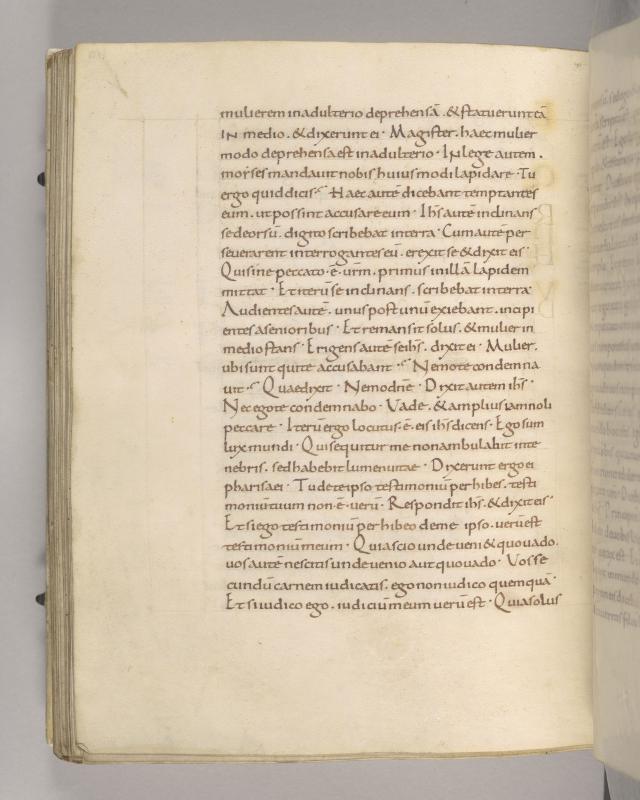 mulierem inadulterio deprehensā . & statuerunt eā
IN medio . & dixerunt ei · Magister . haec mulier
modo deprehensa est inadulterio · IN lege autem .
moyses mandavit nobis huiusmodi lapidare · Tu
ergo quid dicis · Haec autē dicebant temptantes
eum . ut possint accusare eum · Ihs autē inclinans
se deorsū . digito scribebat interra · Cum autē per
severarent interrogantes eū . erexit se & dixit eis ·
Qui sine peccato · ē · vrm̄ . primus inillā lapidem
mittat · Et iterū se inclinans . scribebat interra ·
Audientes autē . unus post unū exiebant . incipi
entes asenioribus · Et remansit solus . & mulier in
medio stans · Erigens autē se ihs . dixit ei · Mulier .
ubi sunt qui te accusabant · Nemo te condemna
vit · Quae dixit · Nemo dn̄e · Dixit autem ihs ·
Nec ego te condemnabo · Vade . & amplius iam noli
peccare · Iterū ergo locutus · ē · eis ihs dicens · Ego sum
lux mundi · Qui sequitur me non ambulabit inte
nebris . sed habebit lumen vitae · Dixerunt ergo ei
pharisaei · Tu de te ipso testimoniū perhibes . testi
moniū tuum non · ē · verū · Respondit ihs . & dixit eis ·
Et si ego testimoniū perhibeo de me ipso . verū est
testimoniū meum · Quia scio unde veni & quo vado .
vos autē nescitis unde venio aut quo vado · Vos se
cundū carnem iudicatis . ego non iudico quemquā ·
Et si iudico ego . iudiciū meum verū est · Quia solus